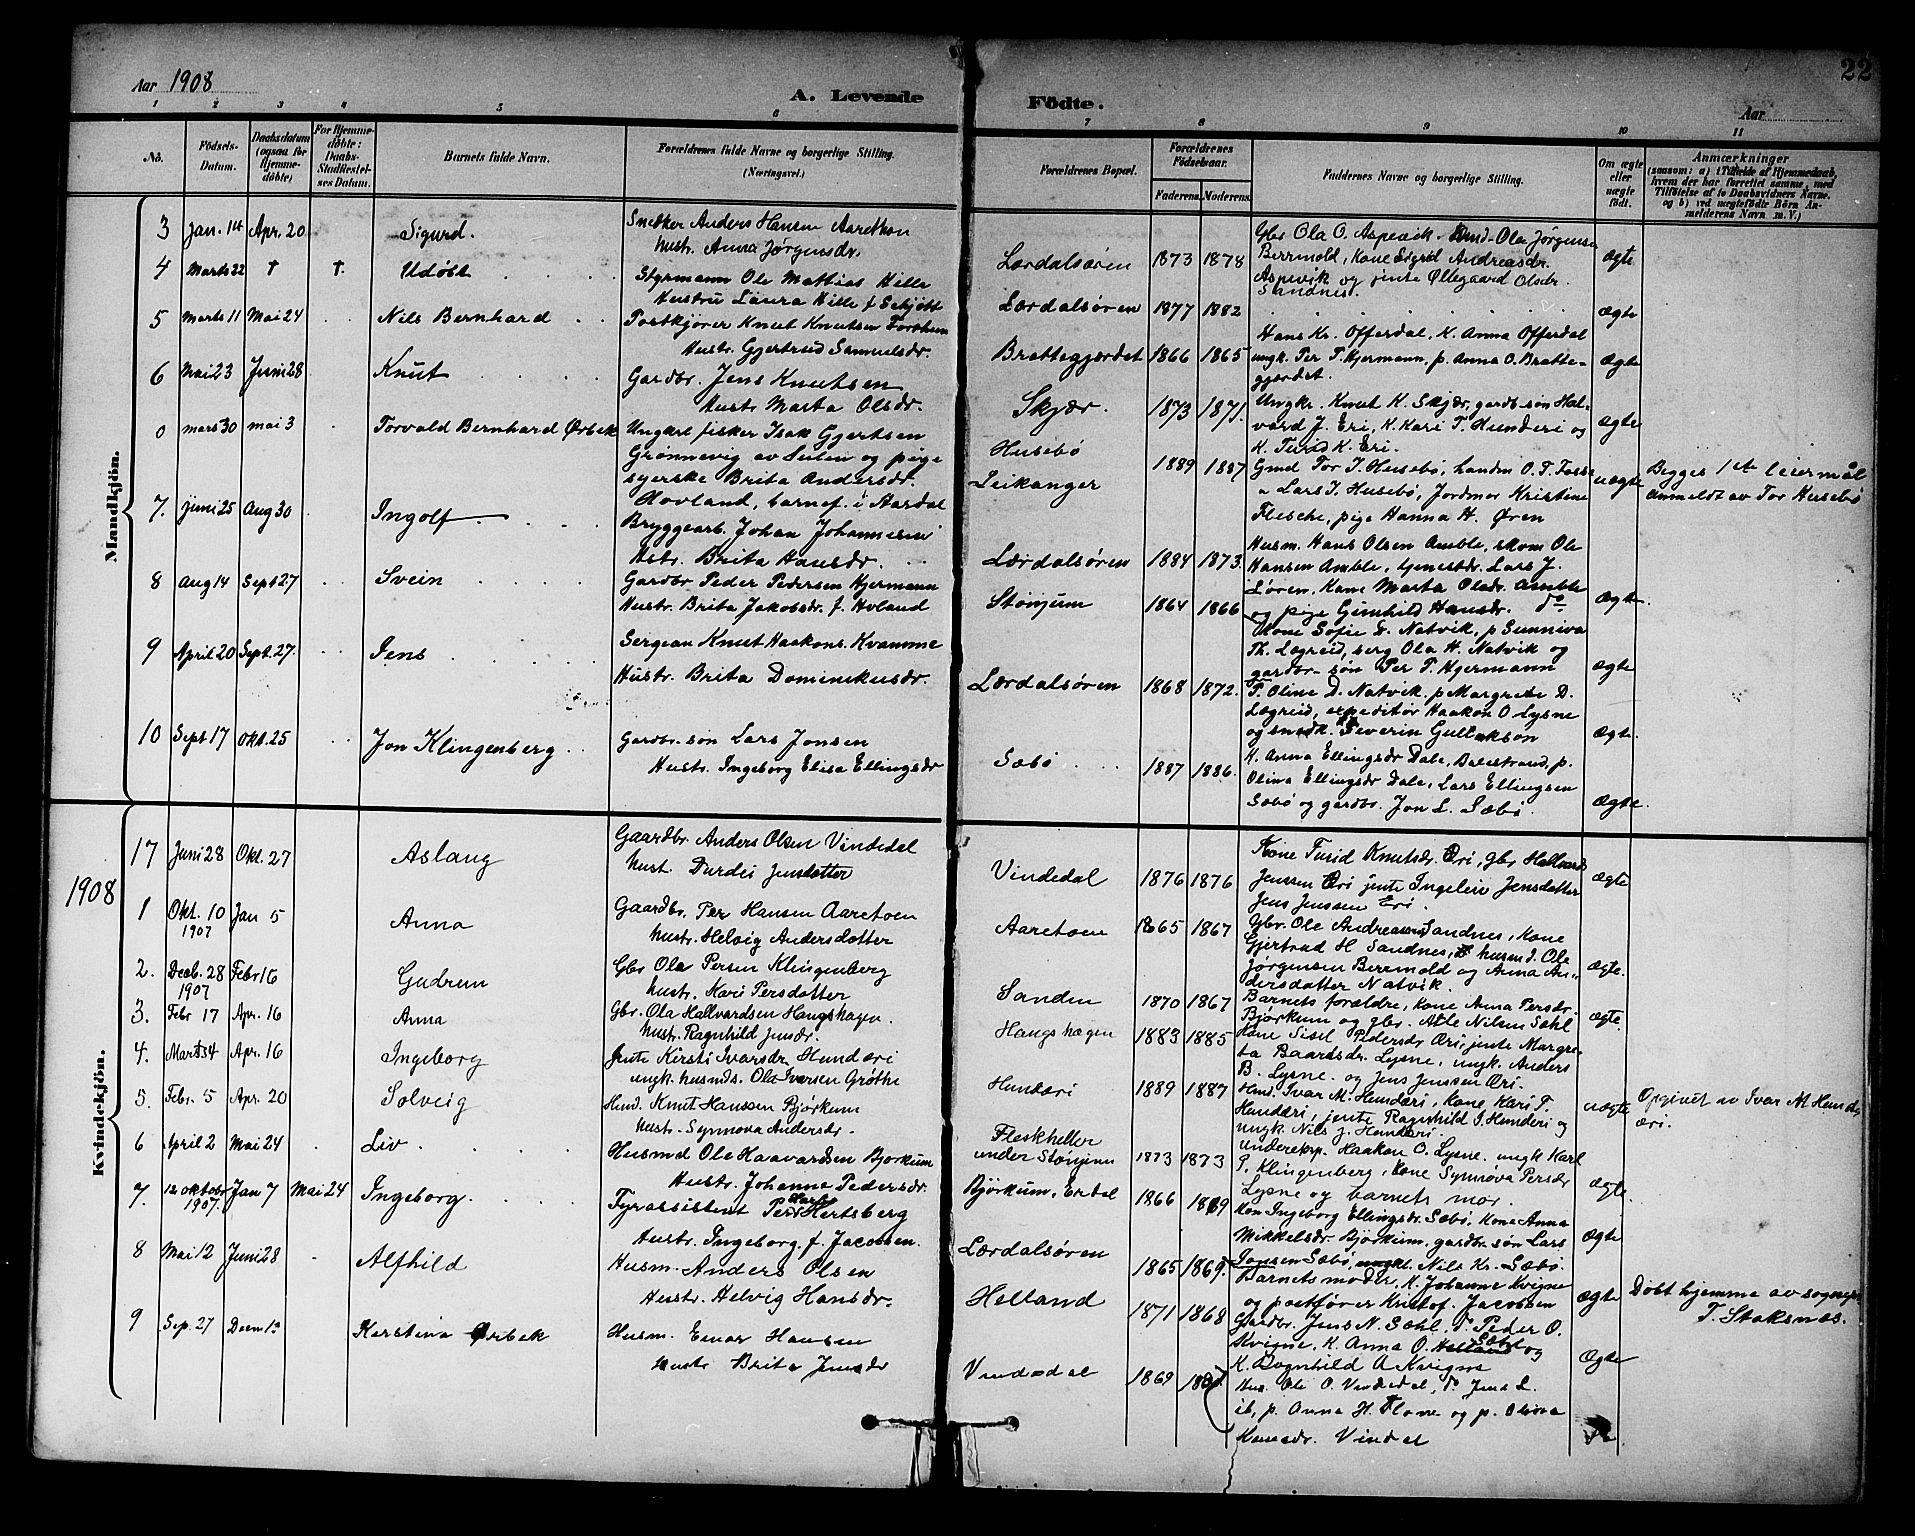 22
Aar 1908
A. Levende Födte.
Aar
1 2 3 4 5 6 7 8 9 10 11
No.
Födsels-Datum.
Daabsdatum (ogsaa for Hjemmedöbte)
For Hjemmedöbte: Daabs-Stadfæstelses Datum.
Barnets fulde Navn.
Forældrenes fulde Navne og borgerlige Stilling.
(Næringsvei.)
Forældrenes Bopæl.
Forældrenes Födselsaar.
Faderens. Moderens.
Faddernes Navne og borgerlige Stilling.
Om ægte eller uægte födt.
Anmærkninger
(saasom: a) i Tilfælde af Hjemmedaab,
hvem der har forrettet samme, med
Tilföielse af to Daabsvidners Navne.
og b) ved uægtefödte Börn Anmelderens Navn m. V.)
Mandkjön.
3 Jan. 14 Apr. 20 Sigurd. Snedker Anders Hansen Aaretun
Hustr. Anna Jørgensdr. Lærdalsøren 1873 1878 ægte
Gbr Ola O. Aspevik. Hmd. Ola Jørgensen
Bermold, Kone Sigrid Andreasdr.
Aspevik og jente Øllegaard Olsdr.
Sandnes.
4 Marts 22 † †. Udøbt Styrmann Ole Mathias Hille
Hustru Laura Hille f. Schjøtt Lærdalsøren 1877 1882 ægte
5 Marts 11 Mai 24 Nils Bernhard Postkjører Knut Knutsen Forthun
Hustr. Gjertrud Samuelsdr. Brattegjerdet 1866 1865 ægte
Hans Kr. Offerdal, K. Anna Offerdal
ungk. Per T. Hjermann, p. Anna O. Brattegjerdet.
6 Mai 23 Juni 28 Knut Gardbr. Jens Knutsen
Hustr Marta Olsdr. Skjær. 1873 1871. ægte
Ungkr. Knut K. Skjær, gardb. søn Halvard J. Eri, K. Kari T. Hunderi og
K. Turid K. Eri.
0 mars 30 mai 3 Torvald Bernhard Ørbek Ungkarl fisker Isak Gjertsen
Grønnevig av Sulen og pige
syerske Brita Andersdr.
Hovland, barnef. i Aardal Husebø
Leikanger 1889 1887 uægte
Gmd Tor I. Husebø, landm O. T. Foss
Lars T. Husebø, Jordmor Kristine
Flesche, pige Hanna H. Øren
Begges 1ste leiermål
anmeldt av Tor Husebø
7. juni 25 Aug 30 Ingolf Bryggearb. Johan Johannesen
Hstr. Brita Hansdr. Lærdalsøren 1884 1873.
Husm. Hans Olsen Amble, skom Ole
Hansen Amble, tjenestdr. Lars J.
Løren, Kone Marta Olsdr. Amble
og pige Gunhild Hansdr. do ægte.
8 Aug 14 Sept 27 Svein Gardbr Peder Pedersen Hjermann
Hustr. Brita Jakobsdr. f. Hovland Stønjum 1864 1866
Kone Sofie D. Natvik, p Sunniva
Th. Lægreid, serg Ola H. Natvik og
gardbr. søn Per T. Hjermann ægte
9 April 20 Sept. 27 Jens Sergean Knut Haakons. Kvamme
Hustr. Brita Dominikusdr. Lærdalsøren 1868 1872.
P. Oline D. Natvik, p Margrete D.
Lægreid, expeditør Haakon O Lysne
og snedk. Severin Gullakson ægte.
10 Sept 17 Okt. 25 Jon Klingenberg Gardbr. søn Lars Jonsen
Hustr. Ingeborg Elisa Ellingsdr Sæbø 1887 1886.
K. Anna Ellingsdr Dale, Balestrand, p.
Olina Ellingsdr Dale, Lars Ellingsen
Sæbø og gardbr. Jon L. Sæbø ægte.
Kvindekjön.
17 Juni 28 Okt. 27 Aslaug Gaardbr. Anders Olsen Vindedal
hust. Durdei Jensdatter Vindedal 1876 1876 ægte
Kone Turid Knutsdr. Eri, gbr Hallvard
Jenssen Eri jente Ingeleiv Jensdatter
Jens Jenssen Eri.
1908
1 Okt. 10 1907 Jan 5 Anna Gaardbr. Per Hansen Aaretoen
hustr. Helvig Andersdatter Aaretoen 1865 1867 ægte.
Gbr. Ole Andreassen Sandnes, Kone
Gjertrud H Sandnes, husmd. Ole
Jørgensen Bermold og Anna Andersdatter Natvik.
2. Decb. 28 1907 Febr 16 Gudrun Gbr Ola Persen Klingenberg
hustr. Kari Persdatter Sanden 1870 1867 ægte.
Barnets forældre, Kone Anna Persdr.
Bjørkum og gbr. Atle Nilsen Sæhl
3. Febr 17 Apr. 16 Anna Gbr. Ola Hallvardsen Haugshagen.
hust. Ragnhild Jensdr. Haugshagen 1883 1885
Kone Sisel Pedersdr Eri, jente Margreta Baardsdr. Lysne, ungk. Anders
B. Lysne. og Jens Jenssen Eri.
4. Marts 4 Apr. 16 Ingeborg Jente Kirsti Ivarsdr Hunderi
ungk. husmds. Ola Iversen Grøthe Hunderi 1889 1887 uægte
Hmd. Ivar M. Hunderi, Kone Kari P.
Hunderi, jente Ragnhild I. Hunderi og
ungk. Nils J. Hunderi.
Opgivet av Ivar M Hunderi.
5. Febr. 5 Apr. 20 Solveig Hmd. Knut Hanssen Bjørkum
hustr. Synnøva Andersdr. Fleskheller
under Stønjum 1873 1873
underekp. Haakon O. Lysne. ungk Karl
P. Klingenberg, Kone Synnøva Persdr
Lysne og barnets mor. ægte.
6 April 2 Mai 24 Liv. Husmd Ole Haavardsen Bjorkum
Hustr. Johanne Pedersdr. Bjørkum, Erdal 1866 1869
Kon Ingeborg Ellingsdr. Sæbø, Kone Anna
Mikkelsdr Bjørkum, gardbr. søn Lars
Jonsen Sæbø, ungk. Nils Kr. Sæbø. ægte
7. 12 oktober 1907. Jan 7 Mai 24 Ingeborg. Fyrassistent Peder Hertsberg
Hustr. Ingeborg f. Jacobsen. Lærdalsøren 1865 1869.
Barnets moder, K. Johanne Kvigne
og postfører Kristof. Jacobsen ægte
Døbt hjemme av sognepr.
T. Staksnes.
8 Mai 12 Juni 28 Alfhild Husm. Anders Olsen
Hustr. Helvig Hansdr. Helland 1871 1868
Gardbr. Jens N. Sæhl, do Peder O.
Kvigne, K. Anna O. Sæhl og
K. Ragnhild A Kvigne Ægte
9 Sep. 27 Decm 13 Kerstina Ørbek Husm. Einar Hansen
Hustr Brita Jensdr Vindedal 1869
Hus. Ole O. Vindedal, do Jens L.
ib, p. Anna H. Tlone og p. Olivia
Hansdr. Vindal